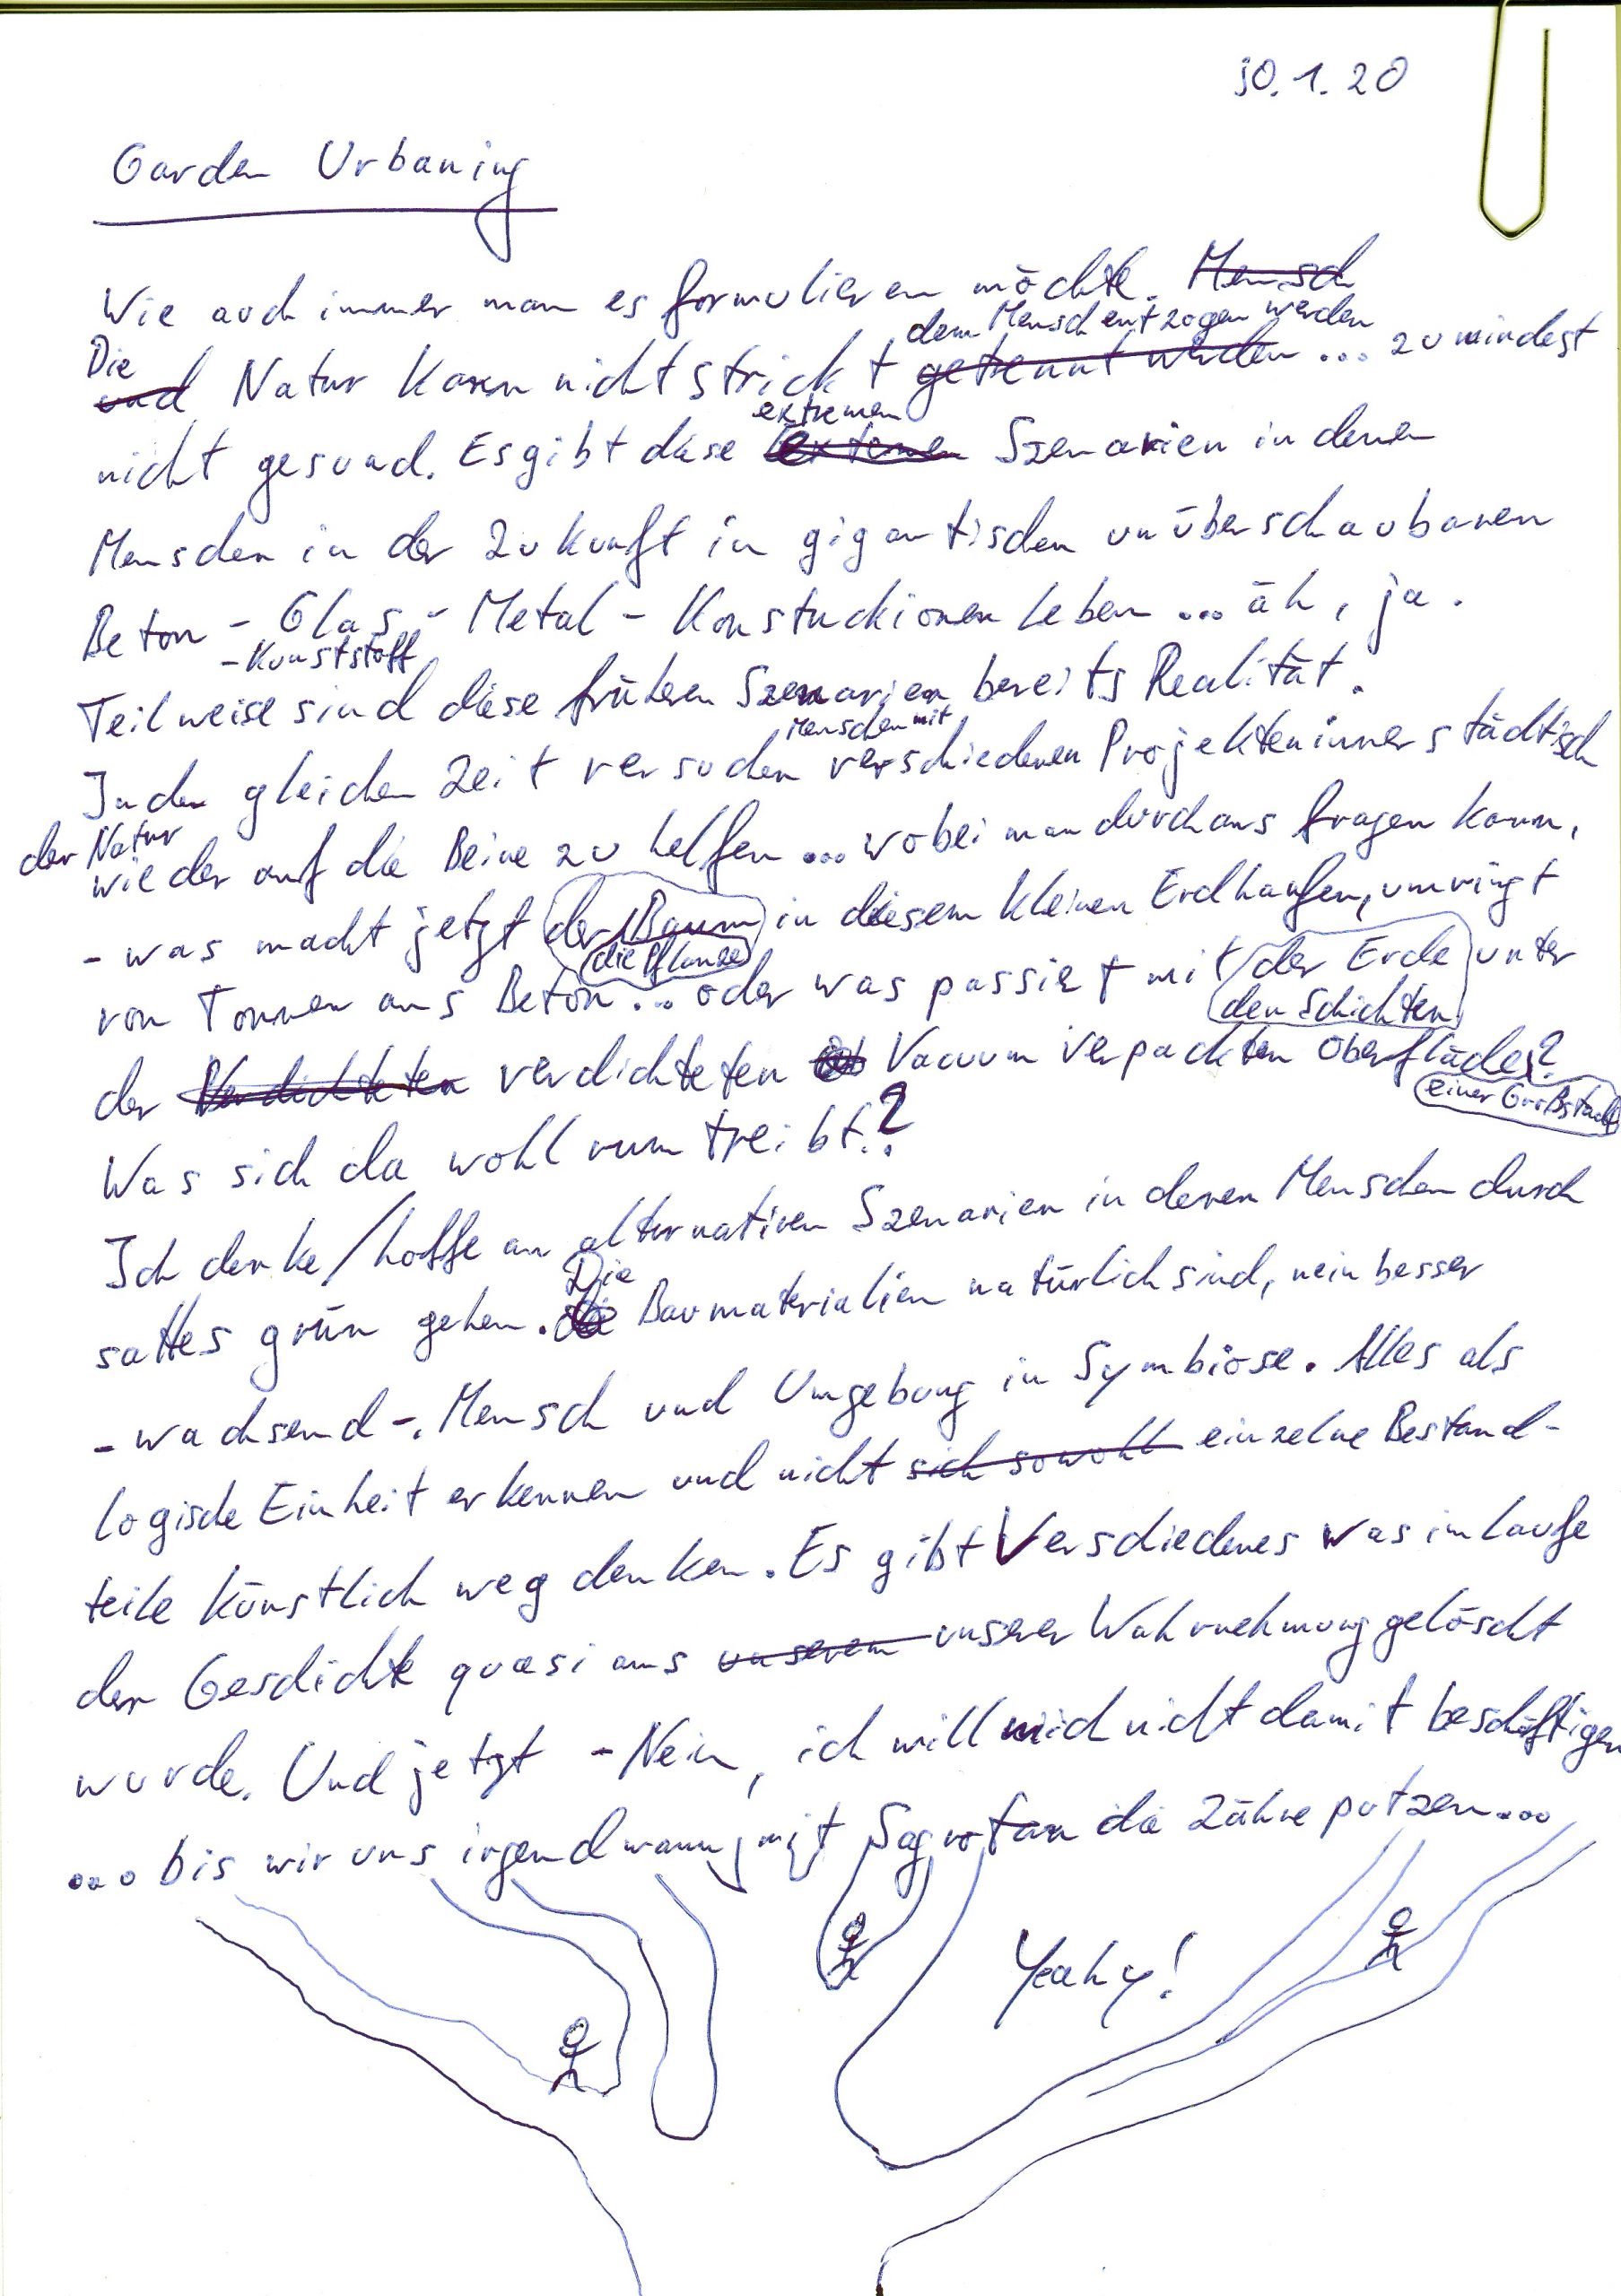 30.1.20
Garden Urbaning
Wie auch immer man es formulieren möchte. Mensch
dem Mensch entzogen werden
Die
und Natur kann nicht strickt getrennt werden ... zumindest
extremen
nicht gesund. Es gibt diese externen Szenarien in denen
Menschen in der Zukunft in gigantischen unüberschaubaren
Beton - Glas - Metal - Konstucktionen leben ... äh, ja.
- Kunststoff
Teilweise sind diese frühen Szenarien bereits Realität.
Menschen mit
In der gleichen Zeit versuchen verschiedenen Projekten innerstädtisch
der Natur
wieder auf die Beine zu helfen ... wobei man durchaus fragen kann,
- was macht jetzt der Baum in diesem kleinen Erdhaufen, umringt
die Pflanze
von Tonnen aus Beton ... oder was passiert mit der Erde unter
den Schichten
der Verdichteten verdichteten Vacuum verpackten oberfläche?
einer Großstadt
Was sich da wohl rum treibt?
Ich denke/hoffe an alternativen Szenarien in denen Menschen durch
Die
sattes grün gehen. die Baumaterialien natürlich sind, nein besser
- wachsend -. Mensch und Umgebung in Symbiose. Alles als
logische Einheit erkennen und nicht sich sowohl einzelne Bestand-
teile künstlich weg denken. Es gibt Verschiedenes was im laufe
der Geschichte quasi aus unserem unserer Wahrnehmung gelöscht
wurde. Und jetzt - Nein, ich will mich nicht damit beschäftigen
... bis wir uns irgendwann mit Sagrotan die Zähne putzen ...
Yeahy!